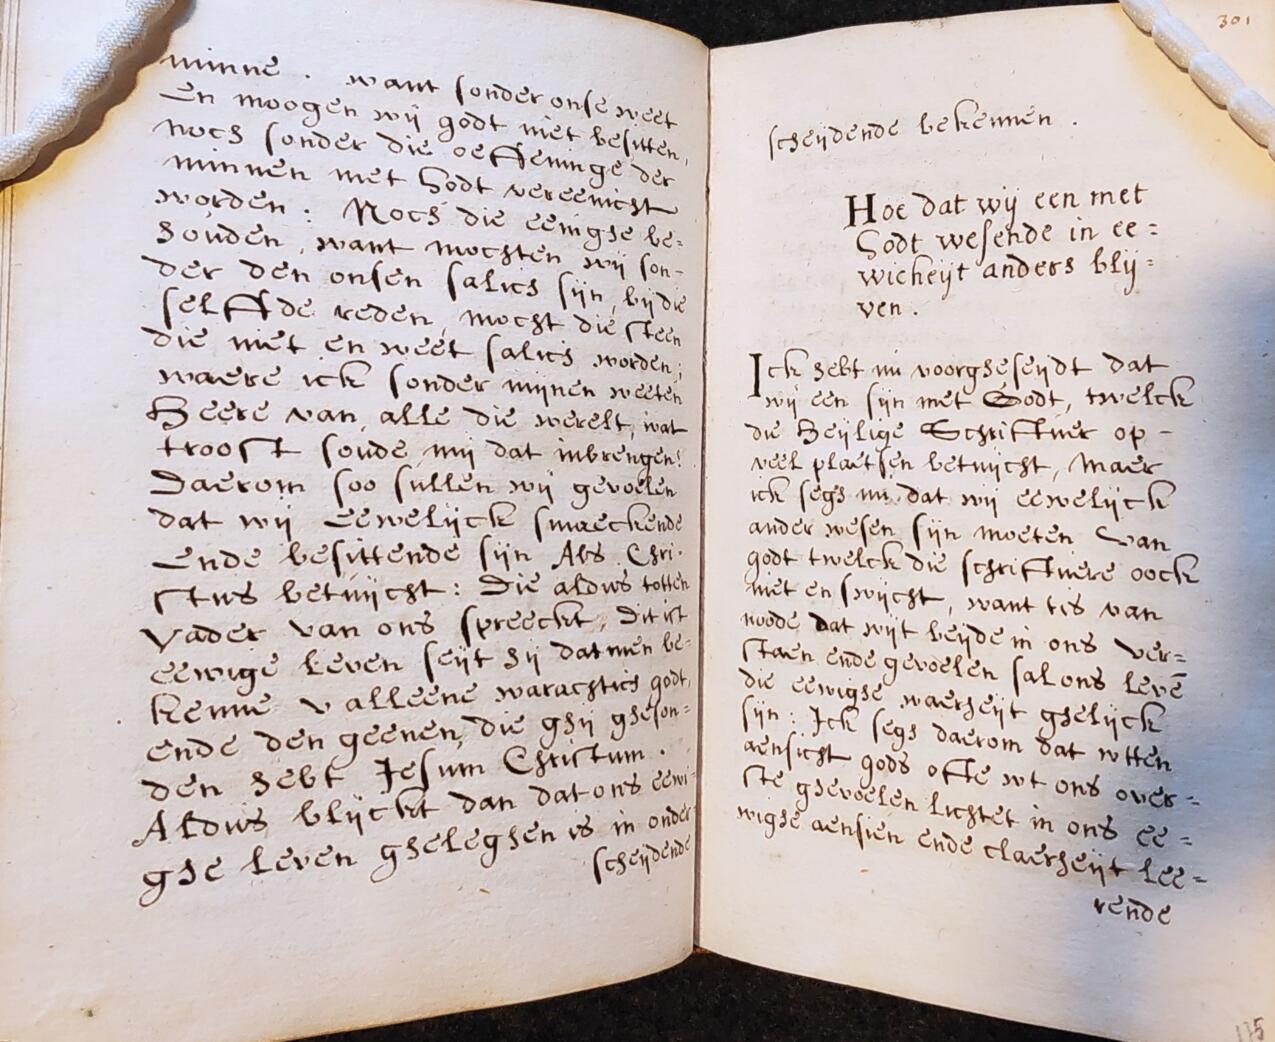 minne. want sonder onse weet
en moogen wij godt niet besitten,
noch sonder die oeffeninge der
minnen met Godt vereenicht
worden: Noch die eenighe be=
houden, want mochten wij son-
der den onsen salich sijn, bij die
selffde reden, mocht die steen
die niet en weet salich worden;
waere ick sonder mijnen weeten
Heere van alle die werelt, wat
troost soude mij dat inbrengen!
Daerom soo sullen wij gevoelen
dat wij eewelijck smaeckende
ende besittende sijn Als Chri-
stus betuijcht: Die aldus totten
vader van ons spreeckt, Dit ist
eewige leven seijt hij datmen be=
kenne v alleene warachtich godt,
ende den geenen, die ghij gheson=
den hebt Jesum Christum.
Aldus blijckt dan dat ons eewi-
ghe leven gheleghen is in onder
scheijdende
301
scheijdende bekennen.
Hoe dat wij een met
Godt wesende in ee=
wicheijt anders blij=
ven.
Ick hebt nu voorgheseijdt dat
wij een sijn met Godt, twelck
die Heijlige Schriftuer op-
veel plaetsen betuijcht, maer
ick segh nu, dat wij eewelijck
ander wesen sijn moeten van
godt twelck die schriftuere oock
niet en swijcht, want tis van
noode dat wijt beijde in ons ver=
staen ende gevoelen sal ons leve
die eewighe waerheijt ghelijck
sijn: Ick segh daerom dat wtten
aensicht gods ofte wt ons over=
ste ghevoelen lichtet in ons ee=
wighe aensien ende claerheijt lee=
rende
115